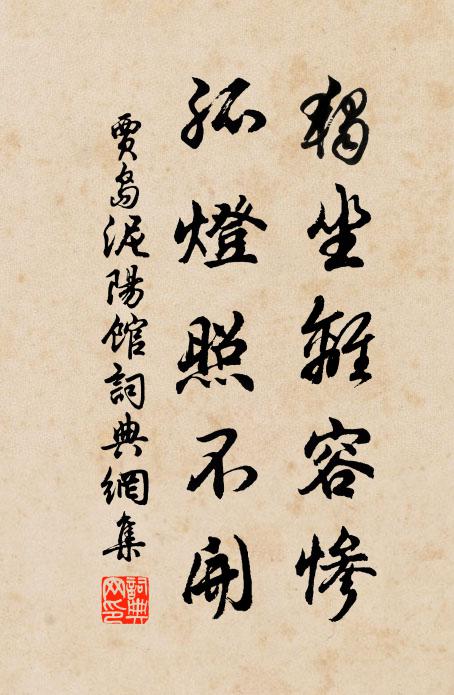 獨坐離容慘
孤燈照不開
賈島泥陽館詞典網集
詞典网印